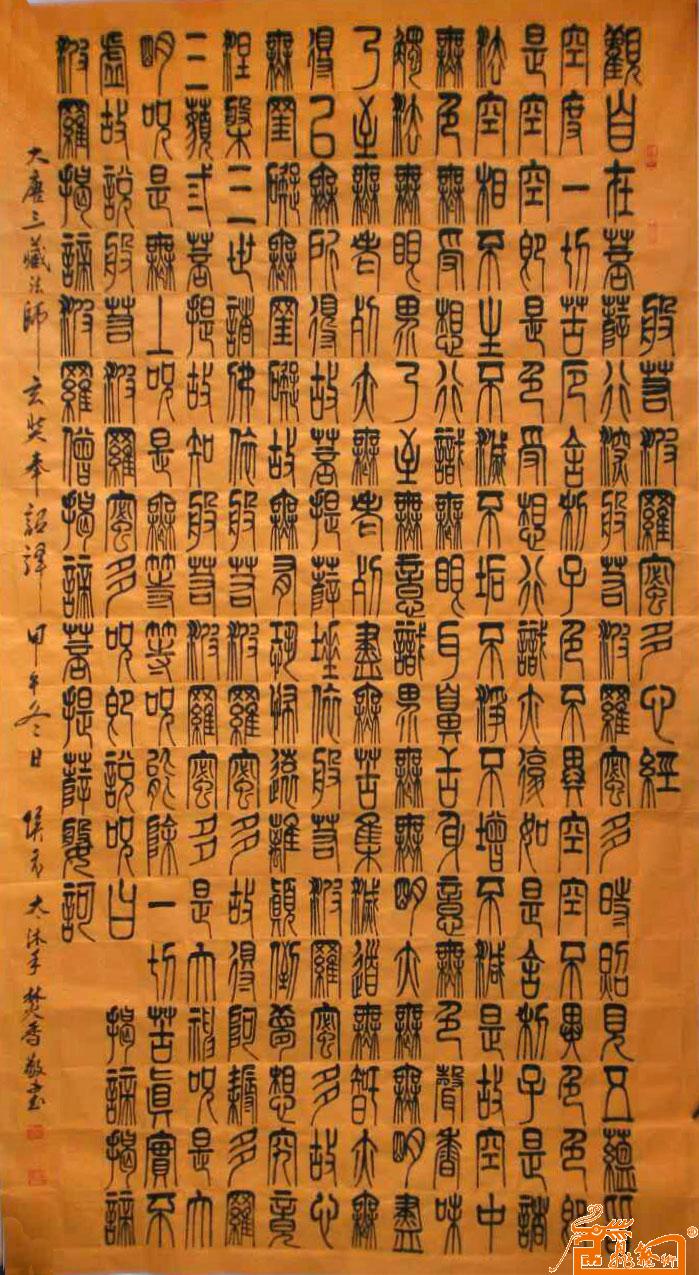 般若波羅蜜多心經
觀自在菩薩行深般若波羅蜜多時照見五蘊皆
空度一切苦厄舍利子色不異空空不異色色即
是空空即是色受想行識亦復如是舍利子是諸
法空相不生不滅不垢不淨不增不減是故空中
無色無受想行識無眼耳鼻舌身意無色聲香味
觸法無眼界乃至無意識界無無明亦無無明盡
乃至無老死亦無老死盡無苦集滅道無智亦無
得以無所得故菩提薩埵依般若波羅蜜多故心
無罣礙無罣礙故無有恐怖遠離顛倒夢想究竟
涅槃三世諸佛依般若波羅蜜多故得阿耨多羅
三藐弎菩提故知般若波羅蜜多是大神咒是大
明咒是無上咒是無等等咒能除一切苦真實不
虛故說般若波羅蜜多咒即說咒曰 揭諦揭諦
波羅揭諦波羅僧揭諦菩提薩婆訶
大唐三藏法師玄奘奉詔譯 甲午冬日 沐手焚香敬書